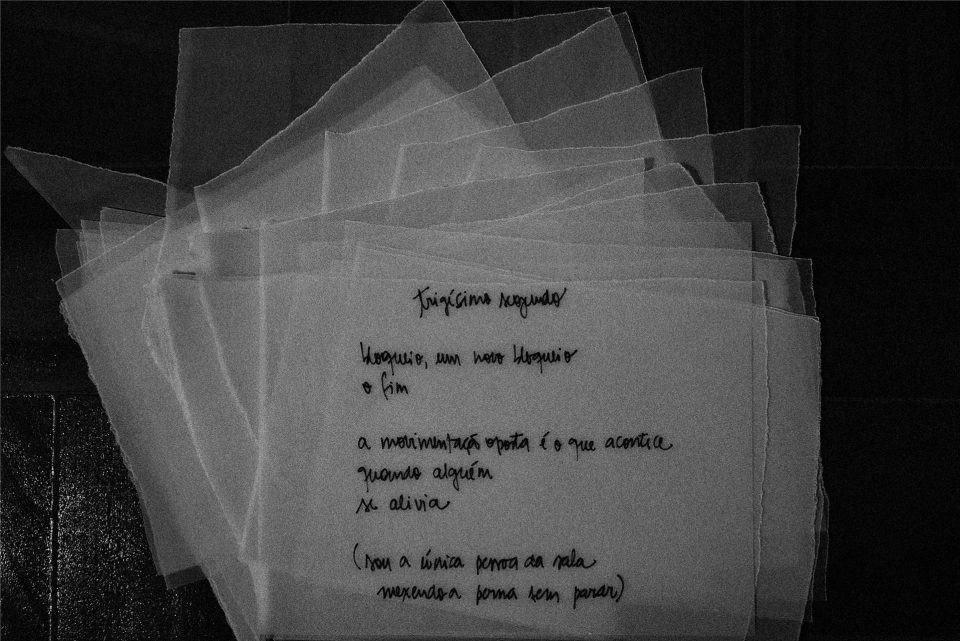 trigésimo segundo
bloqueio, um novo bloqueio
o fim
a movimentação oposta é o que acontece
quando alguém
se alivia
(sou a única pessoa da sala
mexendo a perna sem parar)